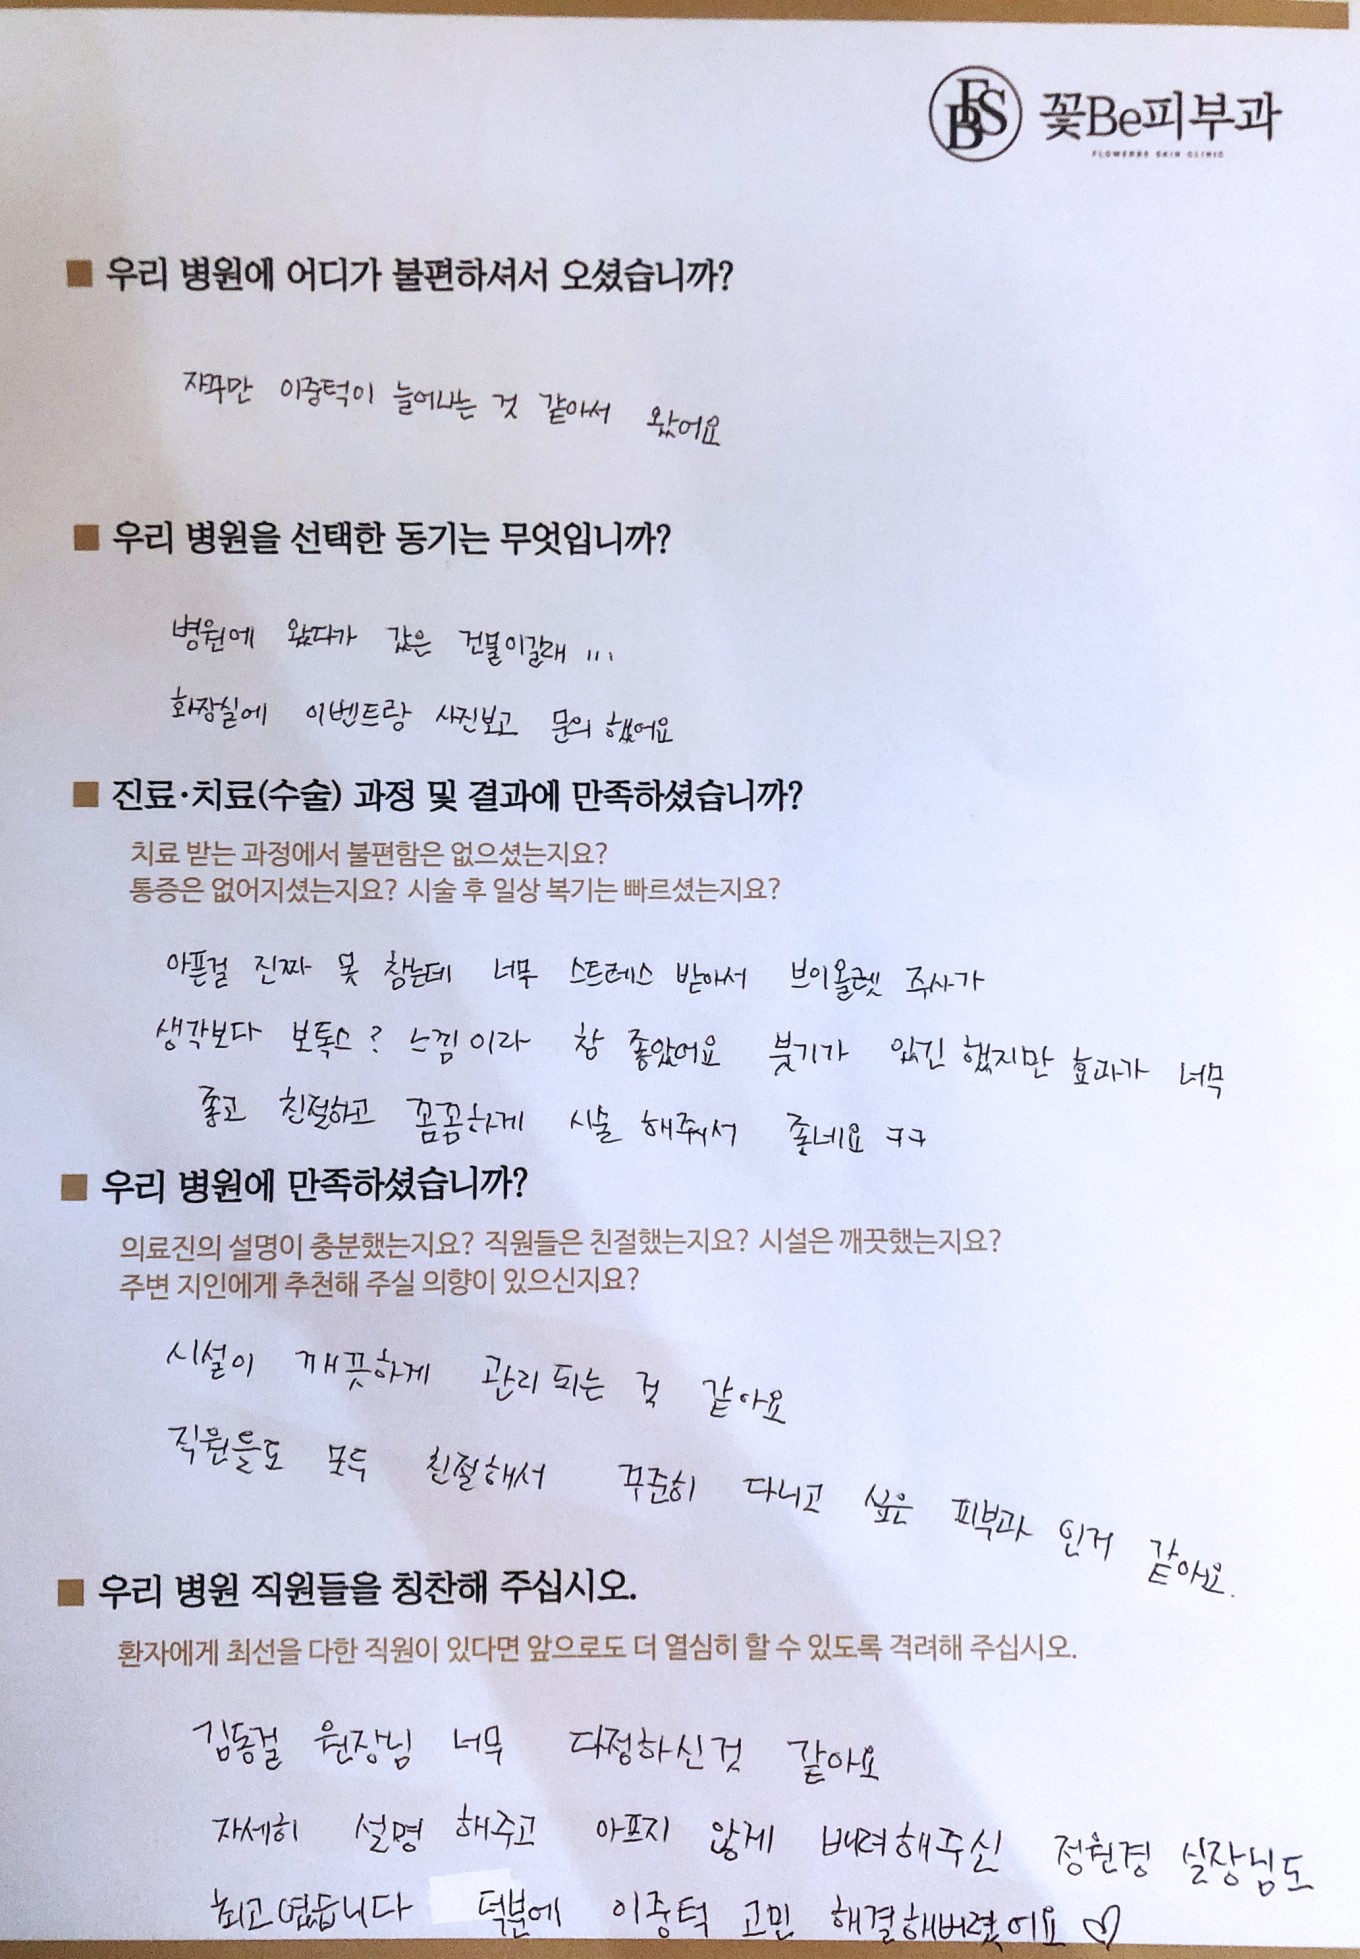 BFS 꽃Be피부과
FLOWERBE SKIN CLINIC
■ 우리 병원에 어디가 불편하셔서 오셨습니까?
자꾸만 이중턱이 늘어나는 것 같아서 왔어요
■ 우리 병원을 선택한 동기는 무엇입니까?
병원에 왔다가 같은 건물이길래 ...
화장실에 이벤트랑 사진보고 문의 했어요
■ 진료·치료(수술) 과정 및 결과에 만족하셨습니까?
치료 받는 과정에서 불편함은 없으셨는지요?
통증은 없어지셨는지요? 시술 후 일상 복기는 빠르셨는지요?
아픈걸 진짜 못 참는데 너무 스트레스 받아서 브이올렛 주사가
생각보다 보톡스? 느낌이라 참 좋았어요 붓기가 있긴 했지만 효과가 너무
좋고 친절하고 꼼꼼하게 시술 해줘서 좋네요 ㅋㅋ
■ 우리 병원에 만족하셨습니까?
의료진의 설명이 충분했는지요? 직원들은 친절했는지요? 시설은 깨끗했는지요?
주변 지인에게 추천해 주실 의향이 있으신지요?
시설이 깨끗하게 관리되는 것 같아요
직원들도 모두 친절해서 꾸준히 다니고 싶은 피부과 인거 같아요.
■ 우리 병원 직원들을 칭찬해 주십시오.
환자에게 최선을 다한 직원이 있다면 앞으로도 더 열심히 할 수 있도록 격려해 주십시오.
김동걸 원장님 너무 다정하신것 같아요
자세히 설명 해주고 아프지 않게 배려해주신 정원경 실장님도
최고였습니다 덕분에 이중턱 고민 해결해버렸어요 ♡